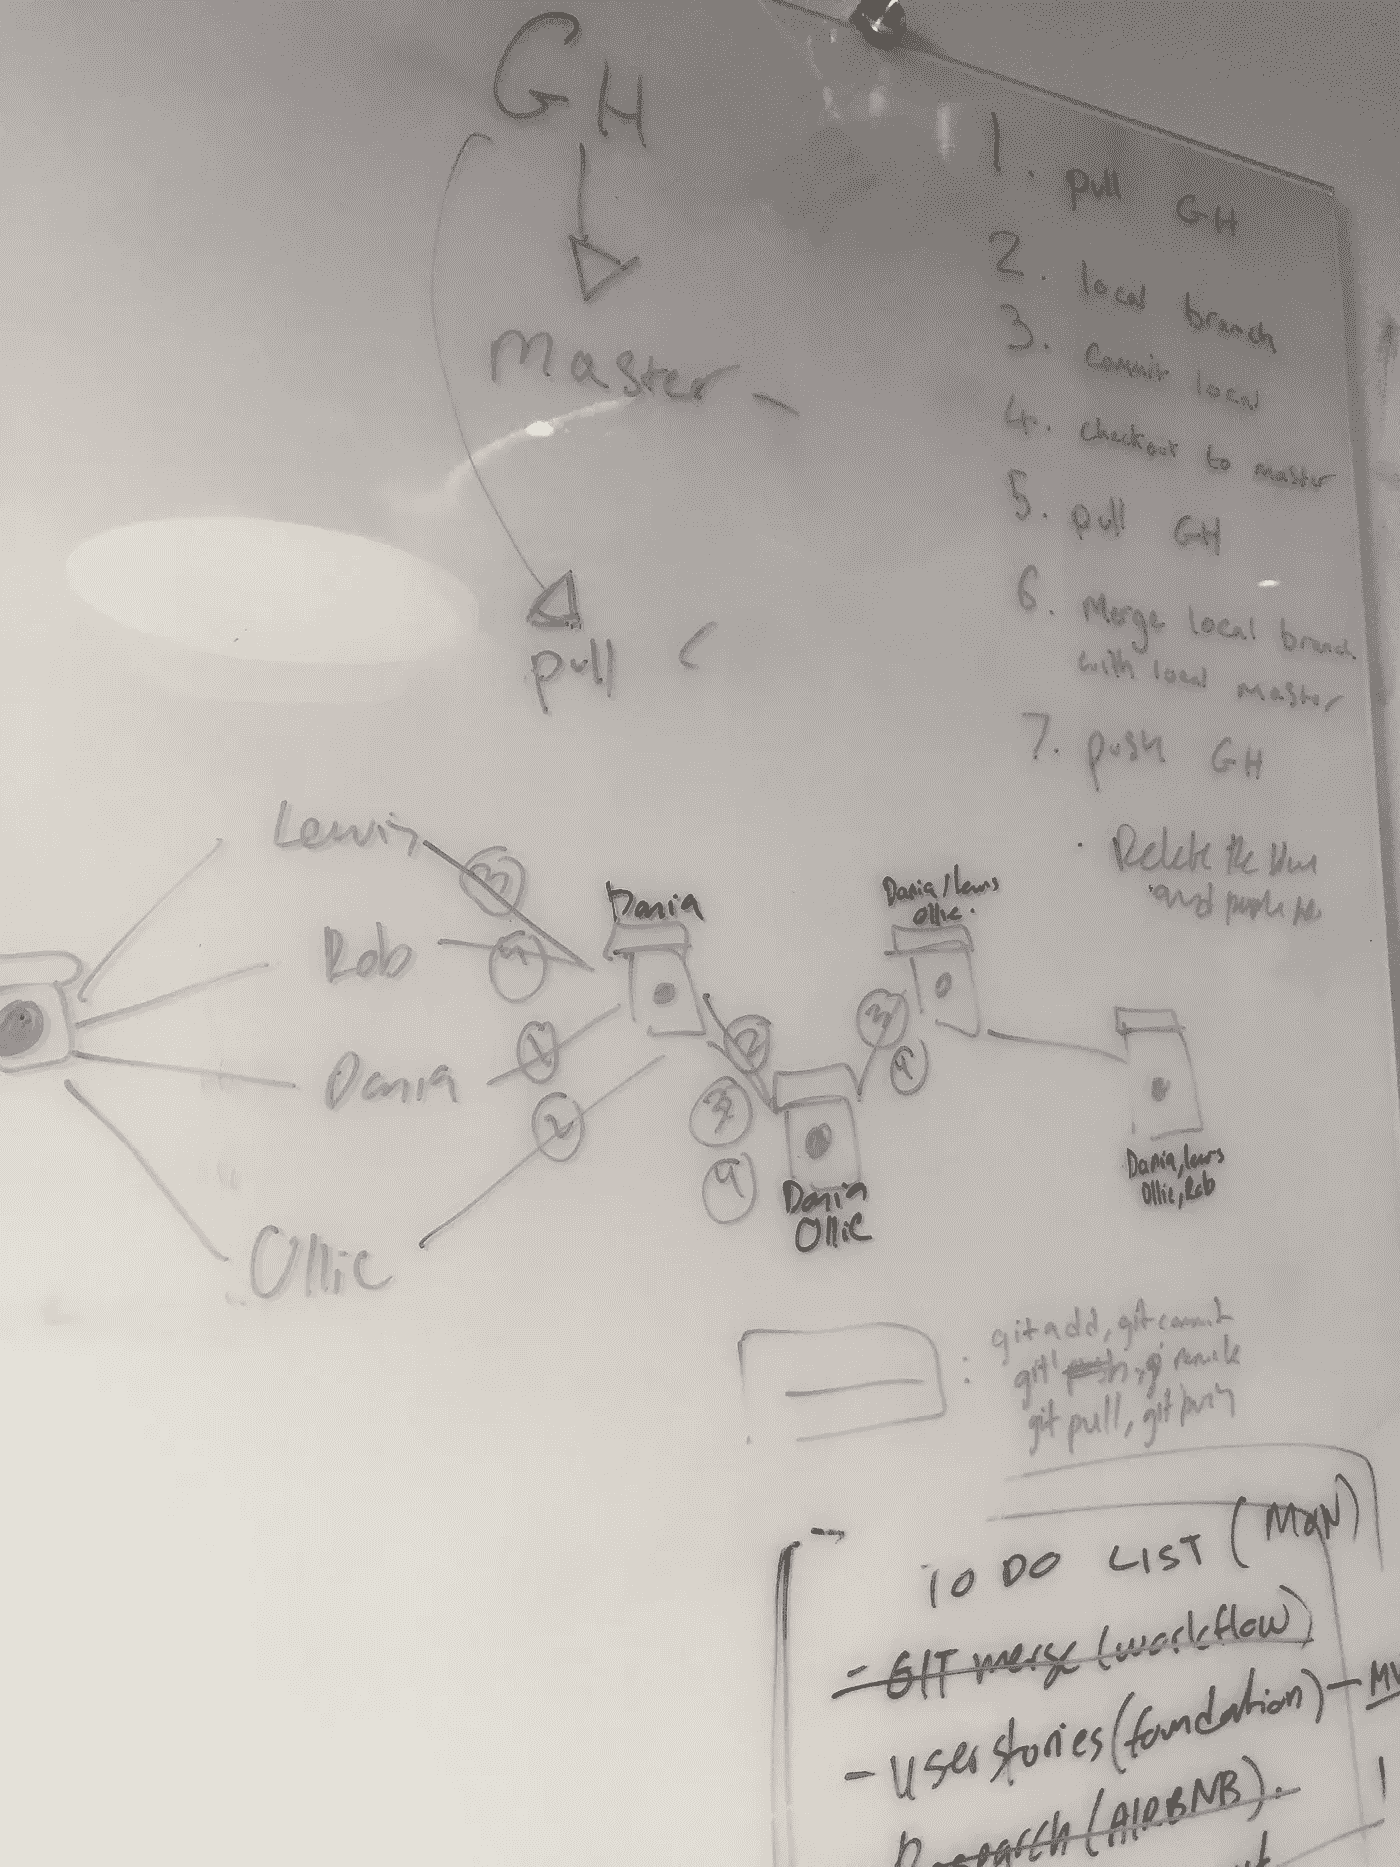 GH
Master
pull
1. pull GH
2. local branch
3. commit local
4. checkout to master
5. pull GH
6. Merge local branch
with local master
7. push GH
Delete the
and push
Lewis
Rob
Dania
Ollie
3
4
1
2
Dania
2
3
4
Dania
Ollie
3
4
Dania/Lewis
Ollie.
Dania, Lewis
Ollie, Rob
: git add, git commit
git
git pull, git push
TO DO LIST (MON)
- GIT merge (workflow)
- User stories (foundation) -
Research (AIRBNB).